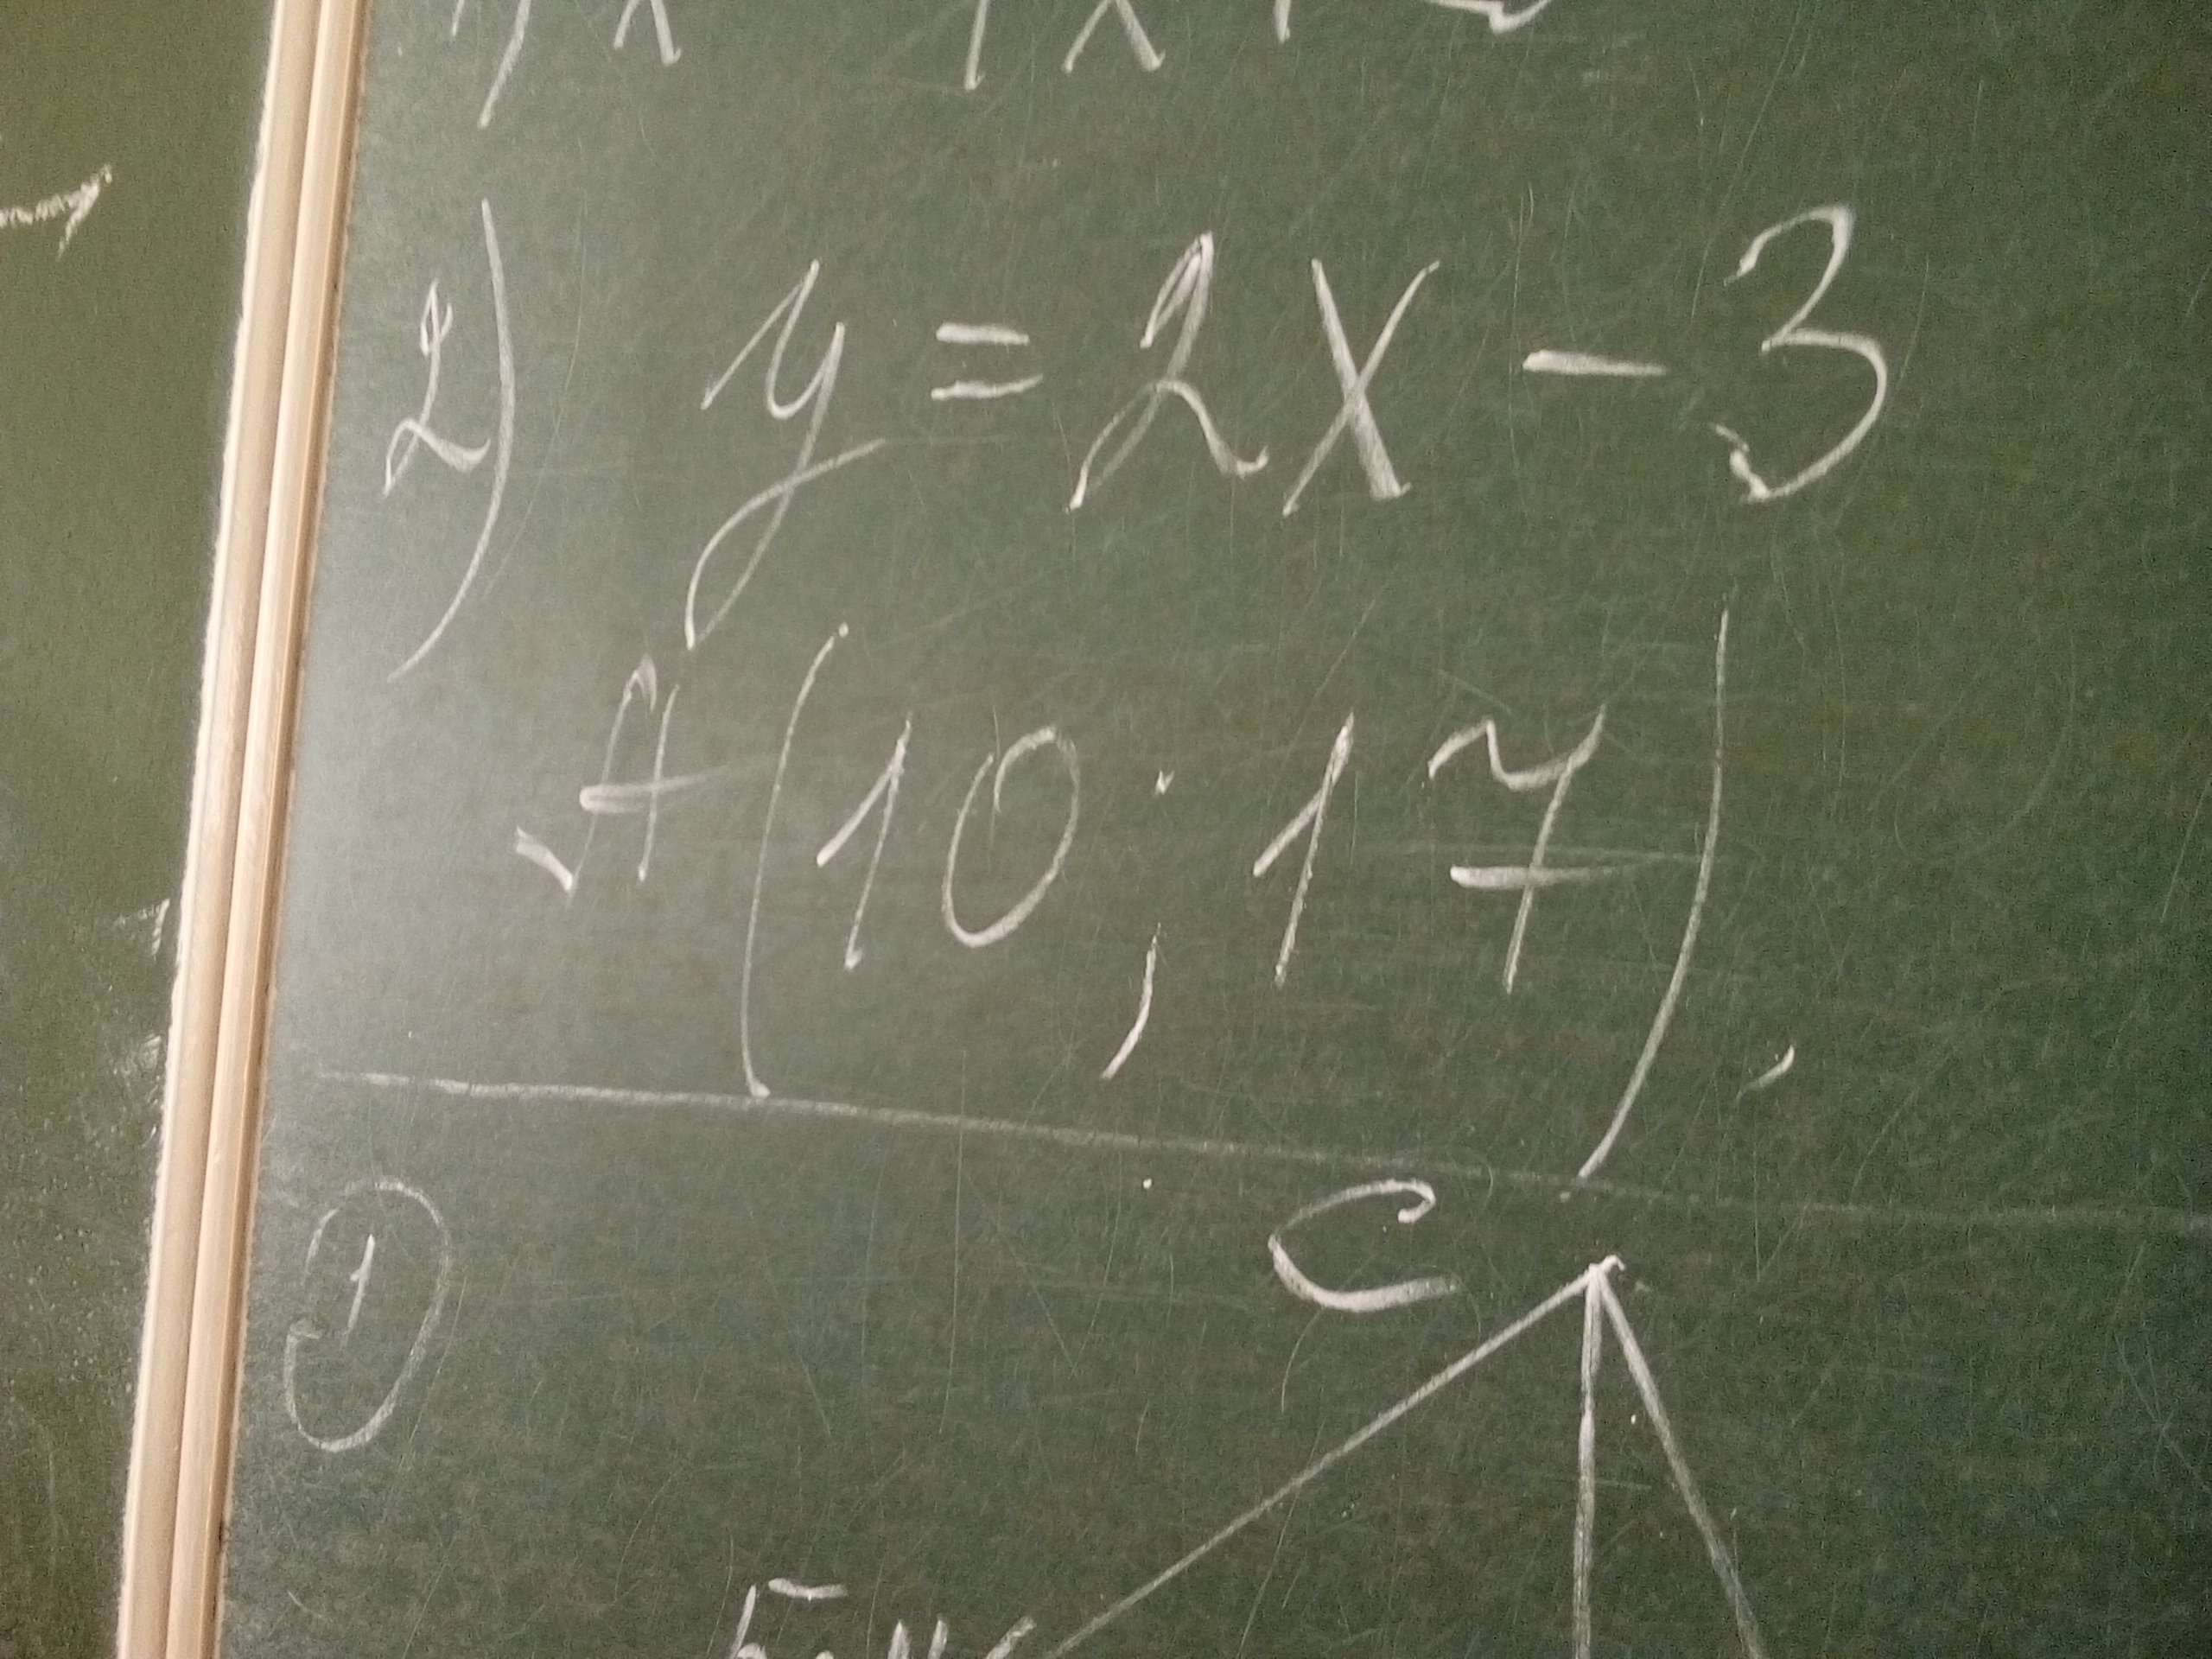 2) y = 2x - 3
A(10; 17).
1
C